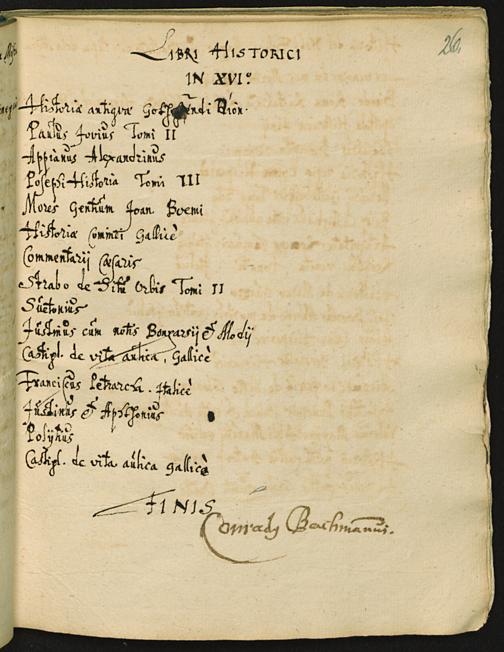 26
LIBRI HISTORICI
IN XVI.º
Historia antiquæ Dion.
Paulus Jovius Tomi II
Appianus Alexandrinus
Josephi Historia Tomi III
Mores Gentium Joan Boemi
Historia Gallicè
Commentarij Cæsaris
Strabo de Situ Orbis Tomi II
Suetonius
Justinus cum notis Bongarsij & Modij
Castigl. de vita aulica, Gallicè
Franciscus Petrarcha. Italicè
Justinus & Aphthonius
Castigl. de vita aulica gallicè
FINIS
Conrad9 Bachmannus.